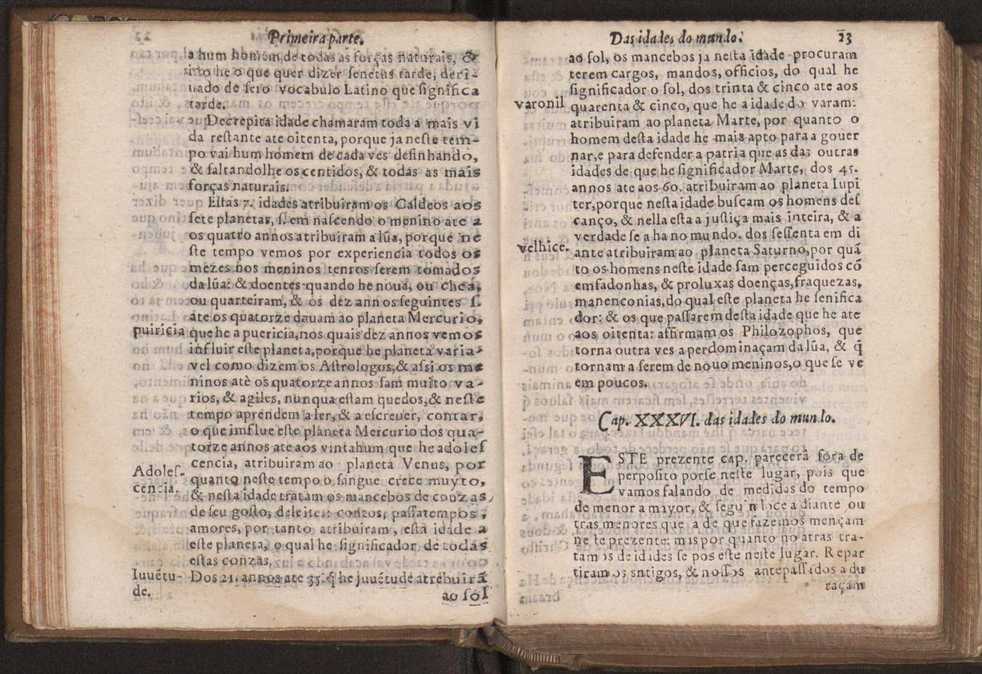 Primeira parte.
la hum homem de todas as forças naturais, &
isto he o que quer dizer senetus tarde, deri-
uado de sero vocabulo Latino que significa
tarde.
Decrepita idade chamaram toda a mais vi
da restante ate oitenta, porque ja neste tem-
po vai hum homem de cada ves definhando,
& faltandolhe os centidos, & todas as mais
forças naturais.
Estas 7. idades atribuiram os Caldeos aos
sete planetas, s. em nascendo o menino ate a
os quatro annos atribuiram a lũa, porque ne
ste tempo vemos por experiencia todos os
mezes nos meninos tenros serem tomados
da lũa: & doentes quando he noua, ou chea,
ou quarteiram, & os dez annos seguintes s.
ate os quatorze dauam ao planeta Mercurio,
puiricia
que he a puericia, nos quais dez annos vemos
influir este planeta, porque he planeta varia-
vel como dizem os Astrologos, & assi os me
ninos atè os quatorze annos sam muito va-
rios, & agiles, nunqua estam quedos, & neste
tempo aprendem a ler, & a escreuer, contar,
o que influe este planeta Mercurio dos qua-
torze annos ate aos vintahum que he adoles
Adoles-
cencia.
cencia, atribuiram ao planeta Venus, por
quanto neste tempo o sangue crece muyto,
& nesta idade tratam os mancebos de couzas
de seu gosto, deleites: contos, passatempos,
amores, por tanto atribuiram, esta idade a
este planeta, o qual he significador de todas
estas conzas,
Iuuẽtu-
de.
Dos 21. annos ate 35. q̃ he juuẽtude atrebuirã
ao sol
Das idades do mundo.
23
ao sol, os mancebos ja nesta idade procuram
terem cargos, mandos, officios, do qual he
significador o sol, dos trinta & cinco ate aos
varonil
quarenta & cinco, que he a idade do varam:
atribuiram ao planeta Marte, por quanto o
homem desta idade he mais apto para a gouer
nar, e para defender a patria que as das outras
idades de que he significador Marte, dos 45.
annos ate aos 60. atribuiram ao planeta Iupi
ter, porque nesta idade buscam os homens des
canço, & nella esta a justiça mais inteira, & a
verdade se a ha no mundo. dos sessenta em di
velhice.
ante atribuiram ao planeta Saturno, por quã
to os homens neste idade sam perseguidos cõ
emfadonhas, & proluxas doenças, fraquezas,
manenconias, do qual este planeta he senifica
dor: & os que passarem desta idade que he ate
aos oitenta: affirmam os Philozophos, que
torna outra ves a perdominaçam da lũa, & q̃
tornam a serem de nouo meninos, o que se ve
em poucos.
Cap. XXXVI. das idades do mundo.
ESTE prezente cap. parecerà fora de
perposito porse neste lugar, pois que
vamos falando de medidas do tempo
de menor a mayor, & segundoce a diante ou
tras menores que a de que fazemos mençam
ne te prezente: mis por quanto no atras tra-
tamos de idades se pos este neste lugar. Repar
tiram os antigos, & nossos antepassados a du
raçam